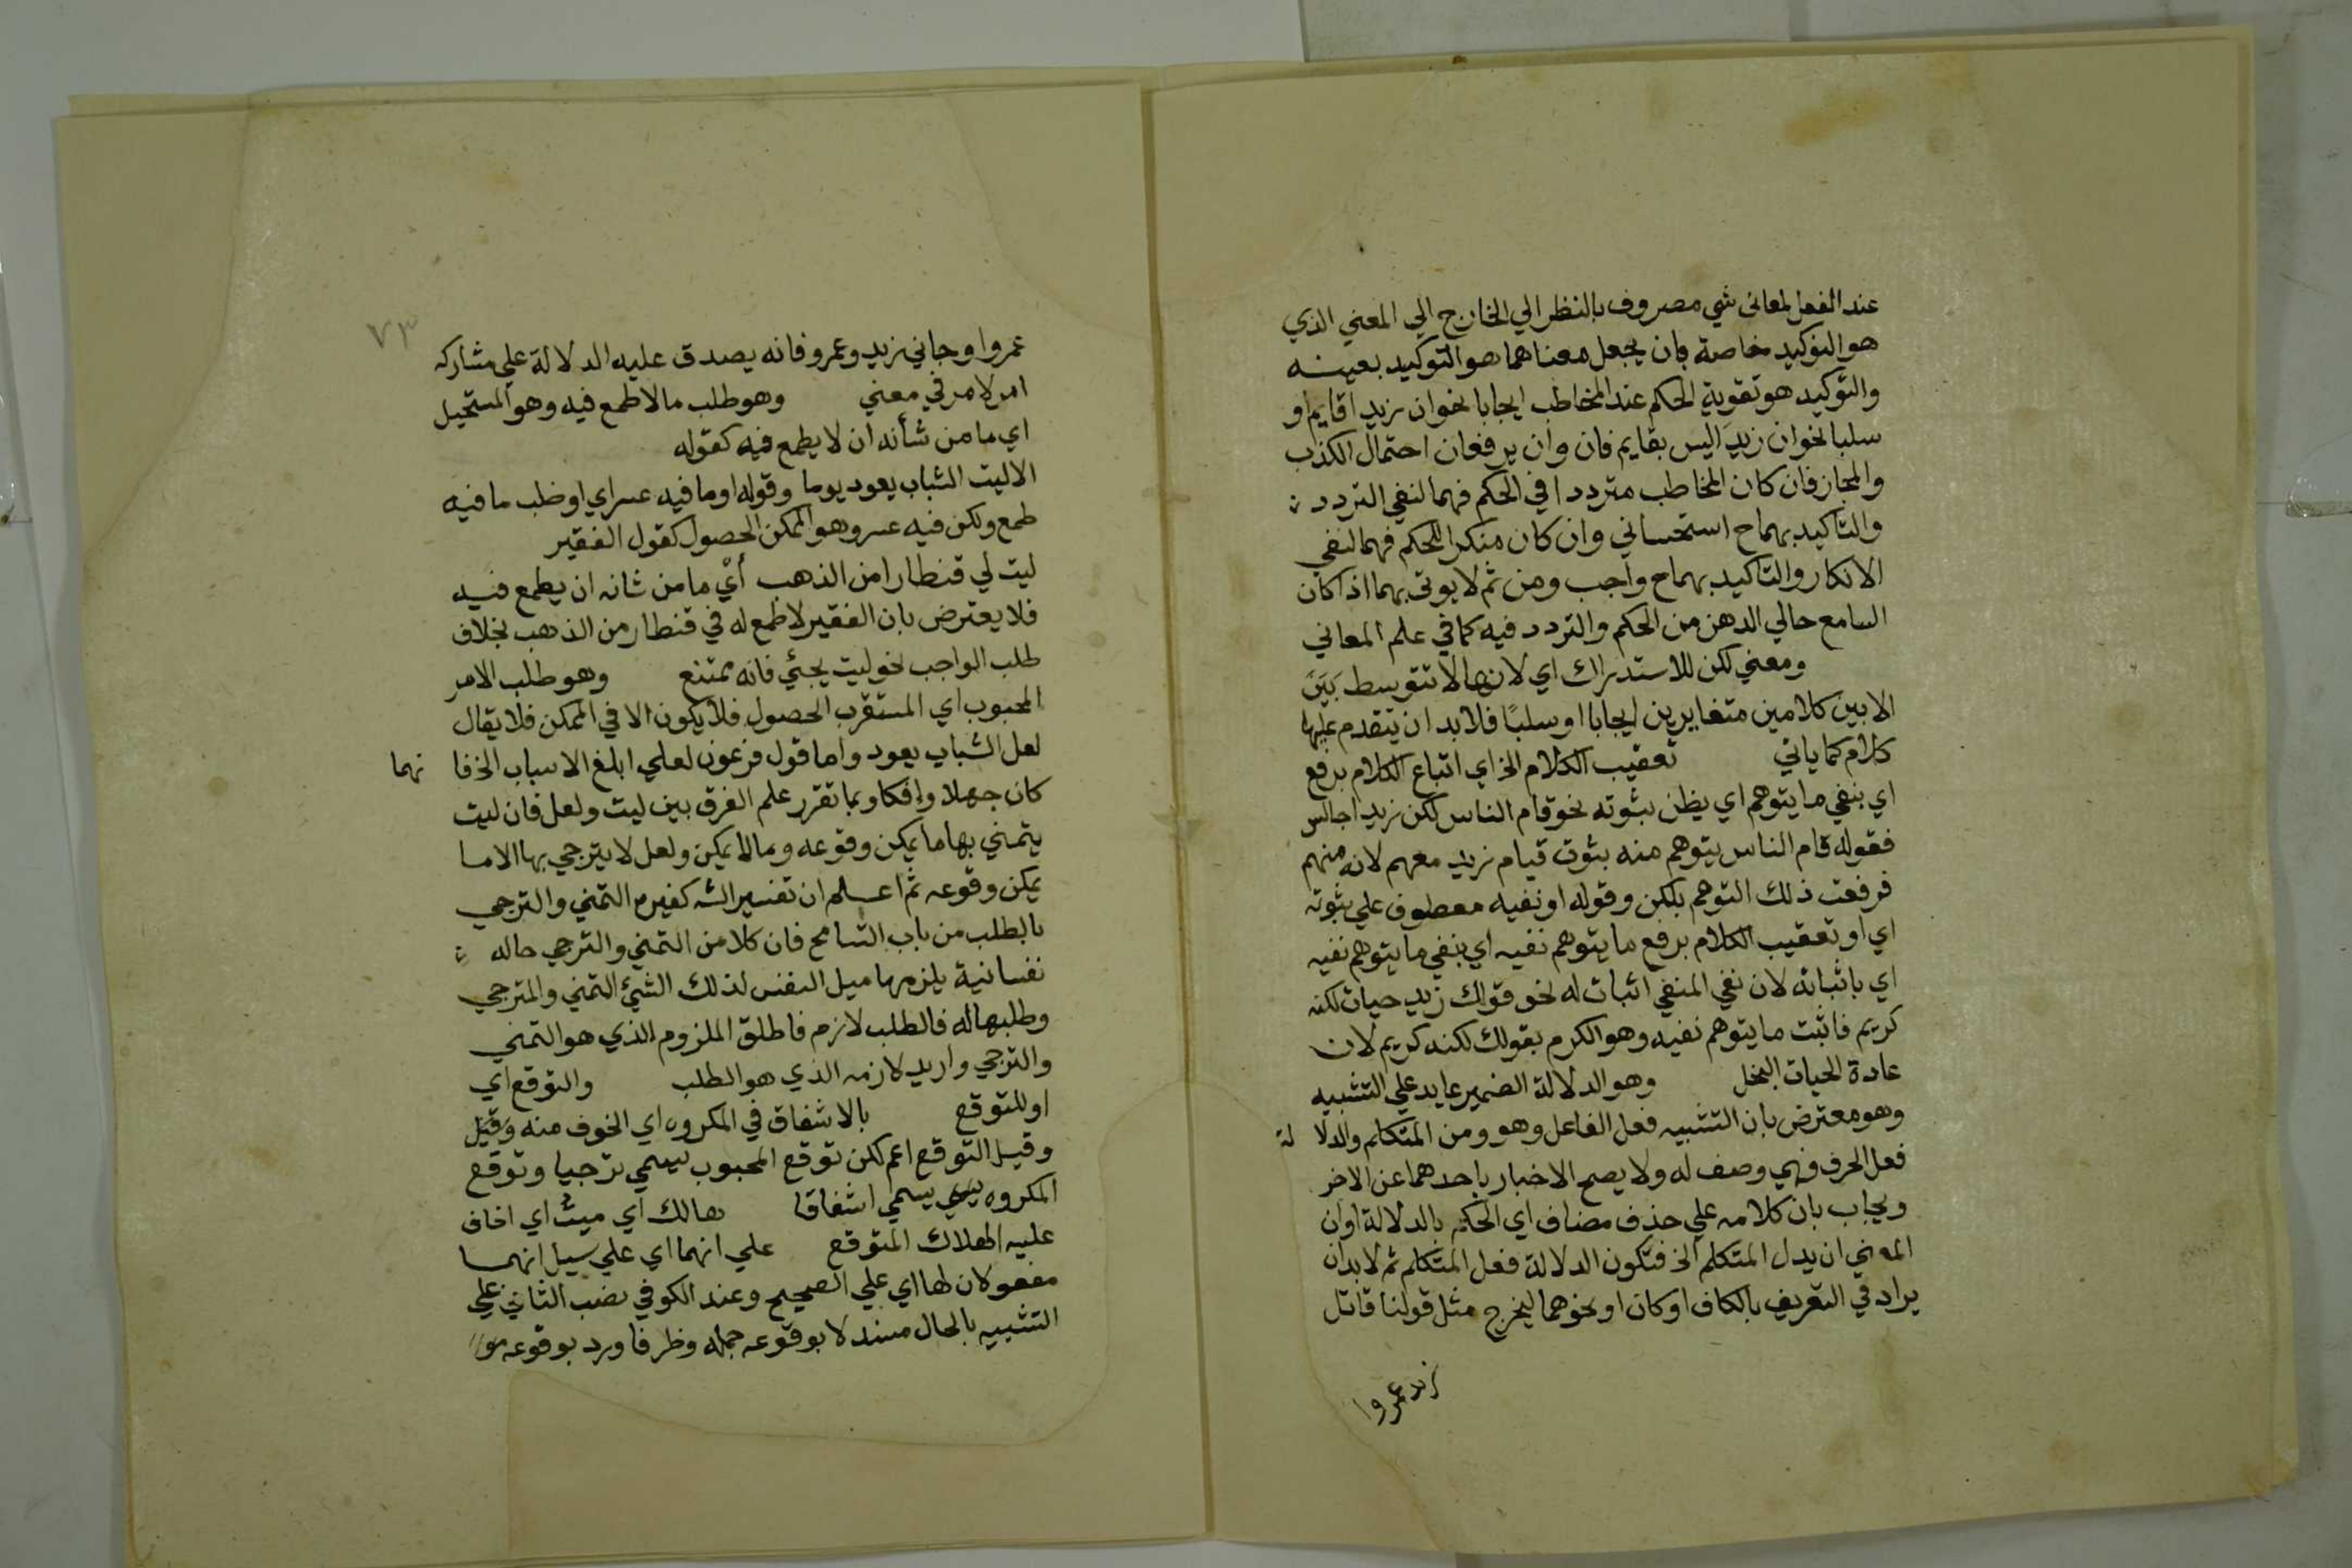 عند الفعل لمعانى شي مصروف بالنظر الي الخارج الي المعني الذي
هو التوكيد خاصة بان يجعل معناهما هو التوكيد بعينه
والتوكيد هو تقوية الحكم عند المخاطب ايجابا نحو ان زيد اقايم او
سلبا نحو ان زيد اليس بقايم فان وان يرفعان احتمال الكذب
والمجاز فان كان المخاطب مترددا في الحكم فهما لنفي التردد
والتاكيد بهما ح استحساني وان كان منكرا للحكم فهما لنفي
الانكار والتاكيد بهما ح واجب ومن ثم لا يوتى بهما اذا كان
السامع خالي الدهن من الحكم والتردد فيه كما في علم المعاني
ومعني لكن للاستدراك اي لانها لا تتوسط بين
الا بين كلامين متغايرين ايجابا او سلبًا فلا بد ان يتقدم عليها
كلام كما ياتي تعقيب الكلام الخ اي اتباع الكلام برفع
اي بنفي ما يتوهم اي يظن ثبوته نحو قام الناس لكن زيد اجالس
فقوله قام الناس يتوهم منه ثبوت قيام زيد معهم لانه منهم
فرفعت ذلك التوهم بلكن وقوله او نفيه معطوف علي ثبوته
اي او تعقيب الكلام برفع ما يتوهم نفيه اي بنفي ما يتوهم نفيه
اي باثباته لان نفي المنفي اثبات له نحو قولك زيد حيات لكنه
كريم فاثبت ما يتوهم نفيه وهو الكرم بقولك لكنه كريم لان
عادة الحيات البخل وهو الدلالة الضمير عايد علي التشبيه
وهو معترض بان التشبيه فعل الفاعل وهو ومن المتكلم والدلا لة
فعل الحرف فهي وصف له ولا يصح الاخبار باحدهما عن الاخر
ويجاب بان كلامه علي حذف مضاف اي الحكم بالدلالة او ان
المعني ان يدل المتكلم الخ فتكون الدلالة فعل المتكلم ثم لا بد ان
يراد في التعريف بالكاف او كان او نحوهما ليخرج مثل قولنا قاتل
زيد عمروا
٧٣
عمروا وجاني زيد وعمرو فانه يصدق عليه الدلالة علي مشاركه
امر لامر في معني وهو طلب ما لا طمع فيه وهو المستحيل
اي ما من شأنه ان لا يطمع فيه كقوله
الا ليت الشباب يعود يوما وقوله او ما فيه عسر اي او طلب ما فيه
طمع ولكن فيه عسر وهو الممكن الحصول كقول الفقير
ليت لي قنطارا من الذهب أي ما من شانه ان يطمع فيه
فلا يعترض بان الفقير لا طمع له في قنطار من الذهب بخلاف
طلب الواجب نحو ليت يجئي فانه ممتنع وهو طلب الامر
المحبوب اي المستقرب الحصول فلا يكون الا في الممكن فلا يقال
لعل الشباب يعود واما قول فرعون لعلي ابلغ الاسباب الخ فا نهما
كان جهلا وإفكا وبما تقرر علم الفرق بين ليت ولعل فان ليت
يتمني بها ما يمكن وقوعه وما لا يمكن ولعل لا يترجي بها الا ما
يمكن وقوعه ثم اعلم ان تفسير الشه كغيره التمني والترجي
بالطلب من باب التسامح فان كلا من التمني والترجي حاله
نفسانية يلزمها ميل النفس لذلك الشيء التمني والمترجي
وطلبها له فالطلب لازم فاطلق الملزوم الذي هو التمني
والترجي واريد لازمه الذي هو الطلب والتوقع اي
او للتوقع بالاشفاق في المكروه اي الخوف منه وقيل
وقيل التوقع اعم لكن توقع المحبوب يسمي ترجيا وتوقع
المكروه يسمي اشفاقا هالك اي ميت اي اخاف
عليه الهلاك المتوقع علي انهما اي علي سيل انهما
مفعولان لها اي علي الصحيح وعند الكوفي نصب الثاني علي
التشبيه بالحال مسند لا بوقوعه جمله وظرفا ورد بوقوعه